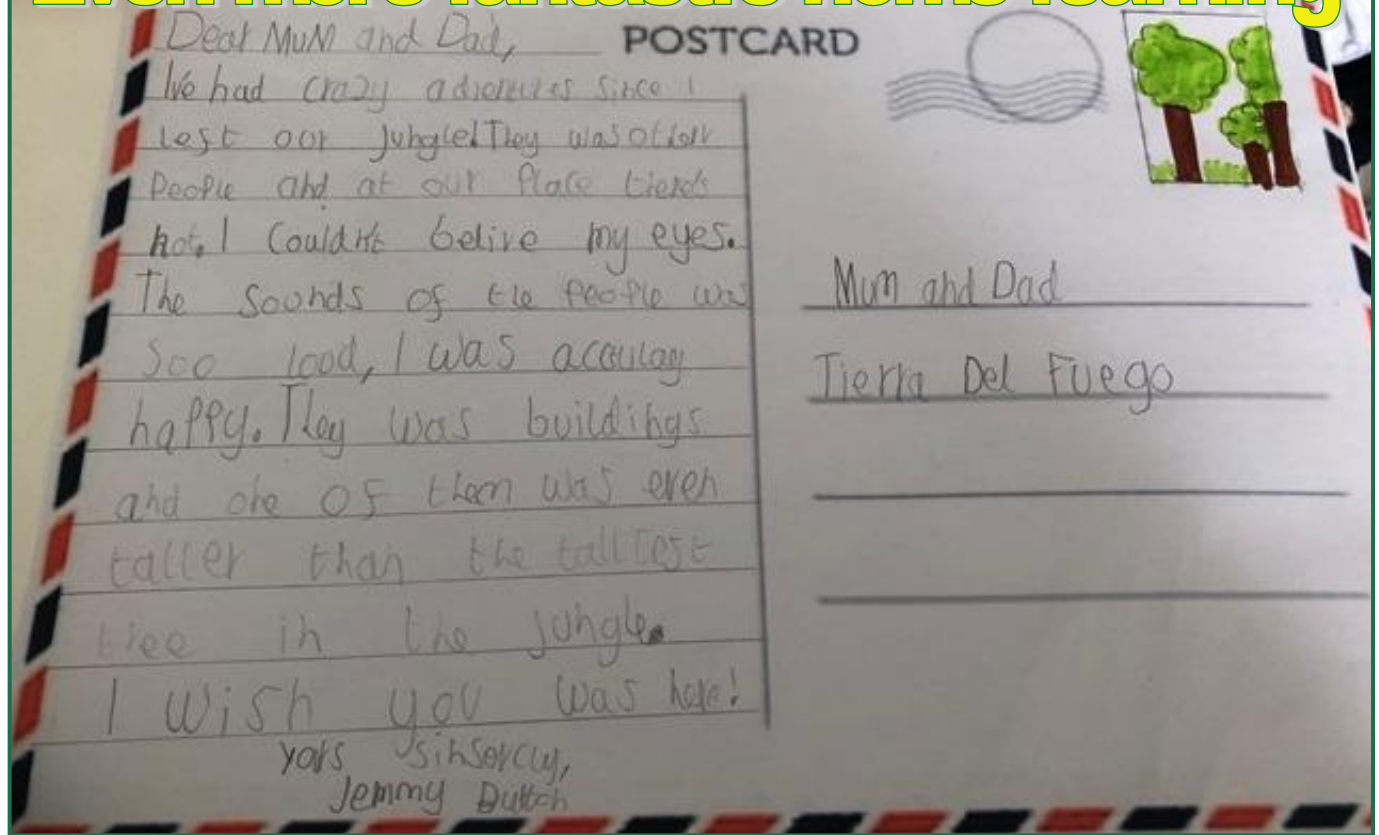 Even more fantastic home learning
POSTCARD
Dear Mum and Dad,
I've had crazy adventures since I
left oor jungle! They was other
People and at our Place there's
not. I Couldn't belive my eyes.
The Sounds of the People was
Soo lood, I was
happy. They was buildings
and one of them was even
taller than the tallest
tree in the jungle.
I wish you was here!
yors sinsercly,
Jemmy Button
Mum and Dad
Tierra Del Fuego